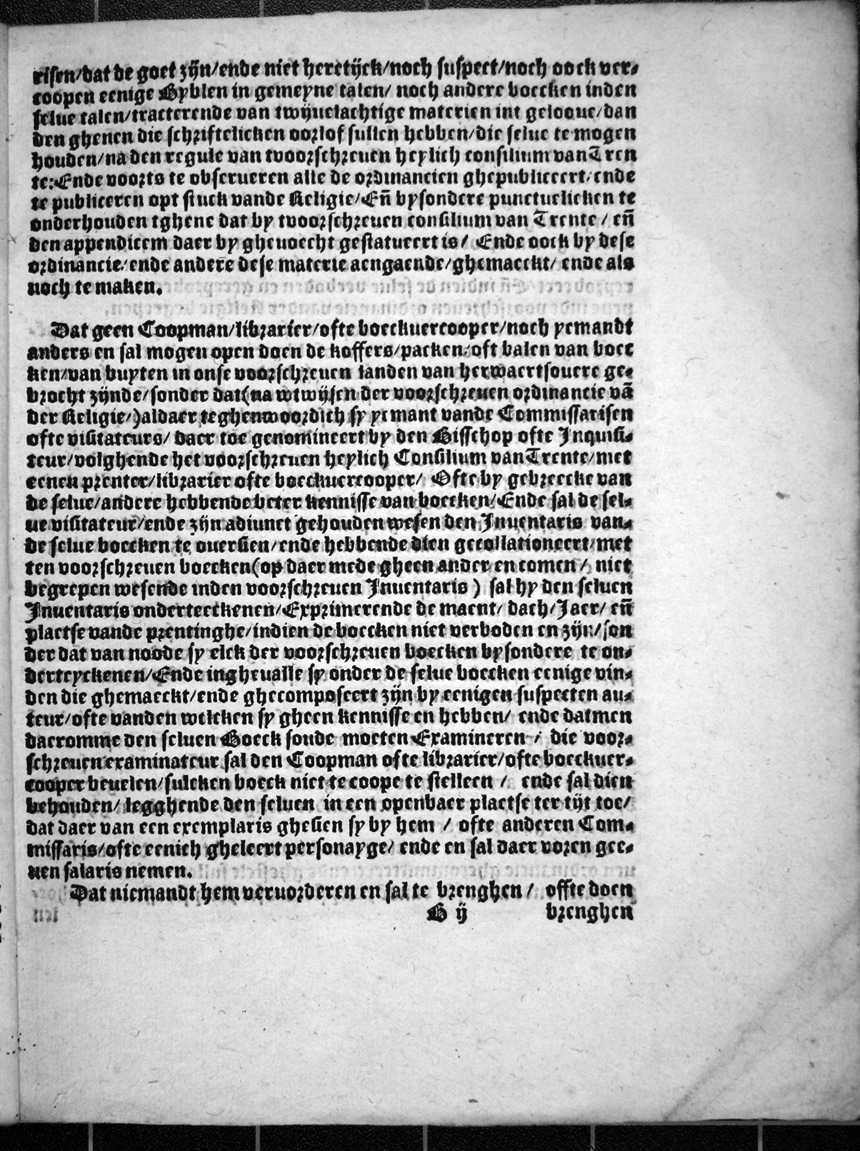 risen/dat de goet zijn/ende niet heretijck/noch suspect/noch oock ver⸗
coopen eenige Byblen in gemeyne talen/ noch andere boecken inden
selue talen/tracterende van twijuelachtige materien int gelooue/dan
den ghenen die schriftelicken oorlof sullen hebben/die selue te mogen
houden/na den regule van tvoorschreuen heylich consilium van Tren
te: Ende voorts te obserueren alle de ordinancien ghepubliceert/ende
te publiceren opt stuck vande Religie/Eñ bysondere punctuelicken te
onderhouden tghene dat by tvoorschreuen consilium van Trente / eñ
den appendicem daer by gheuoecht gestatueert is/ Ende oock by dese
ordinancie/ende andere dese materie aengaende/ghemaeckt/ ende als
noch te maken.
Dat geen Coopman/librarier/ofte boeckuercooper/noch yemandt
anders en sal mogen open doen de koffers/packen/oft balen van boec
ken/van buyten in onse voorschreuen landen van herwaertsouere ge⸗
brocht zijnde/sonder dat(na wtwijsen der voorschreuen ordinancie vã
der Religie/)aldaer teghenwoordich sy yemant vande Commissarisen
ofte visitateurs/ daer toe genomineert by den Bisschop ofte Inquisi⸗
teur/volghende het voorschreuen heylich Consilium van Trente/met
eenen prenter/librarier ofte boeckuercooper/ Ofte by gebreecke van
de selue/andere hebbende beter kennisse van boecken/Ende sal de sel⸗
ue visitateur/ende zijn adiunct gehouden wesen den Inuentaris van⸗
de selue boecken te ouersien/ende hebbende dien gecollationeert/met
ten voorschreuen boecken(op daer mede gheen ander en comen/ niet
begrepen wesende inden voorschreuen Inuentaris ) sal hy den seluen
Inuentaris onderteeckenen/Exprimerende de maent/ dach/Jaer/ eñ
plaetse vande prentinghe/indien de boecken niet verboden en zijn/son
der dat van noode sy elck der voorschreuen boecken bysondere te on⸗
derteyckenen/Ende ingheualle sy onder de selue boecken eenige vin⸗
den die ghemaeckt/ende ghecomposeert zijn by eenigen suspecten au⸗
teur/ofte vanden welcken sy gheen kennisse en hebben/ ende datmen
daeromme den seluen Boeck soude moeten Examineren / die voor⸗
schreuen examinateur sal den Coopman ofte librarier/ofte boeckuer⸗
cooper beuelen/sulcken boeck niet te coope te stelleen / ende sal dien
behouden/ legghende den seluen in een openbaer plaetse ter tijt toe/
dat daer van een exemplaris ghesien sy by hem / ofte anderen Com⸗
missaris/ofte eenich gheleert personayge/ ende en sal daer voren gee⸗
nen salaris nemen.
Dat niemandt hem veruorderen en sal te brenghen/ offte doen
B ij brenghen